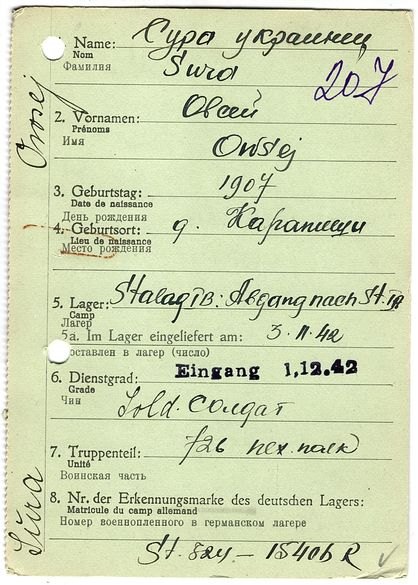 1. Name: Сура украинец
Nom
Фамилия Sura
207
2. Vornamen: Овсей
Prénoms
Имя Owsej
3. Geburtstag: 1907
Date de naissance
День рождения
4. Geburtsort: д. Карапищи
Lieu de naissance
Место рождения
5. Lager: Stalag IB: Abgang nach St.
Camp
Лагерь
5a. Im Lager eingeliefert am: 3.11.42
оставлен в лагер (число)
Eingang 1,12.42
6. Dienstgrad:
Grade
Чин Sold. Солдат
7. Truppenteil: 726 пех. полк
Unité
Воинская часть
8. Nr. der Erkennungsmarke des deutschen Lagers:
Matricule du camp allemand
Номер военнопленного в германском лагере
St. 324 - 15406 R
Owsej
Sura